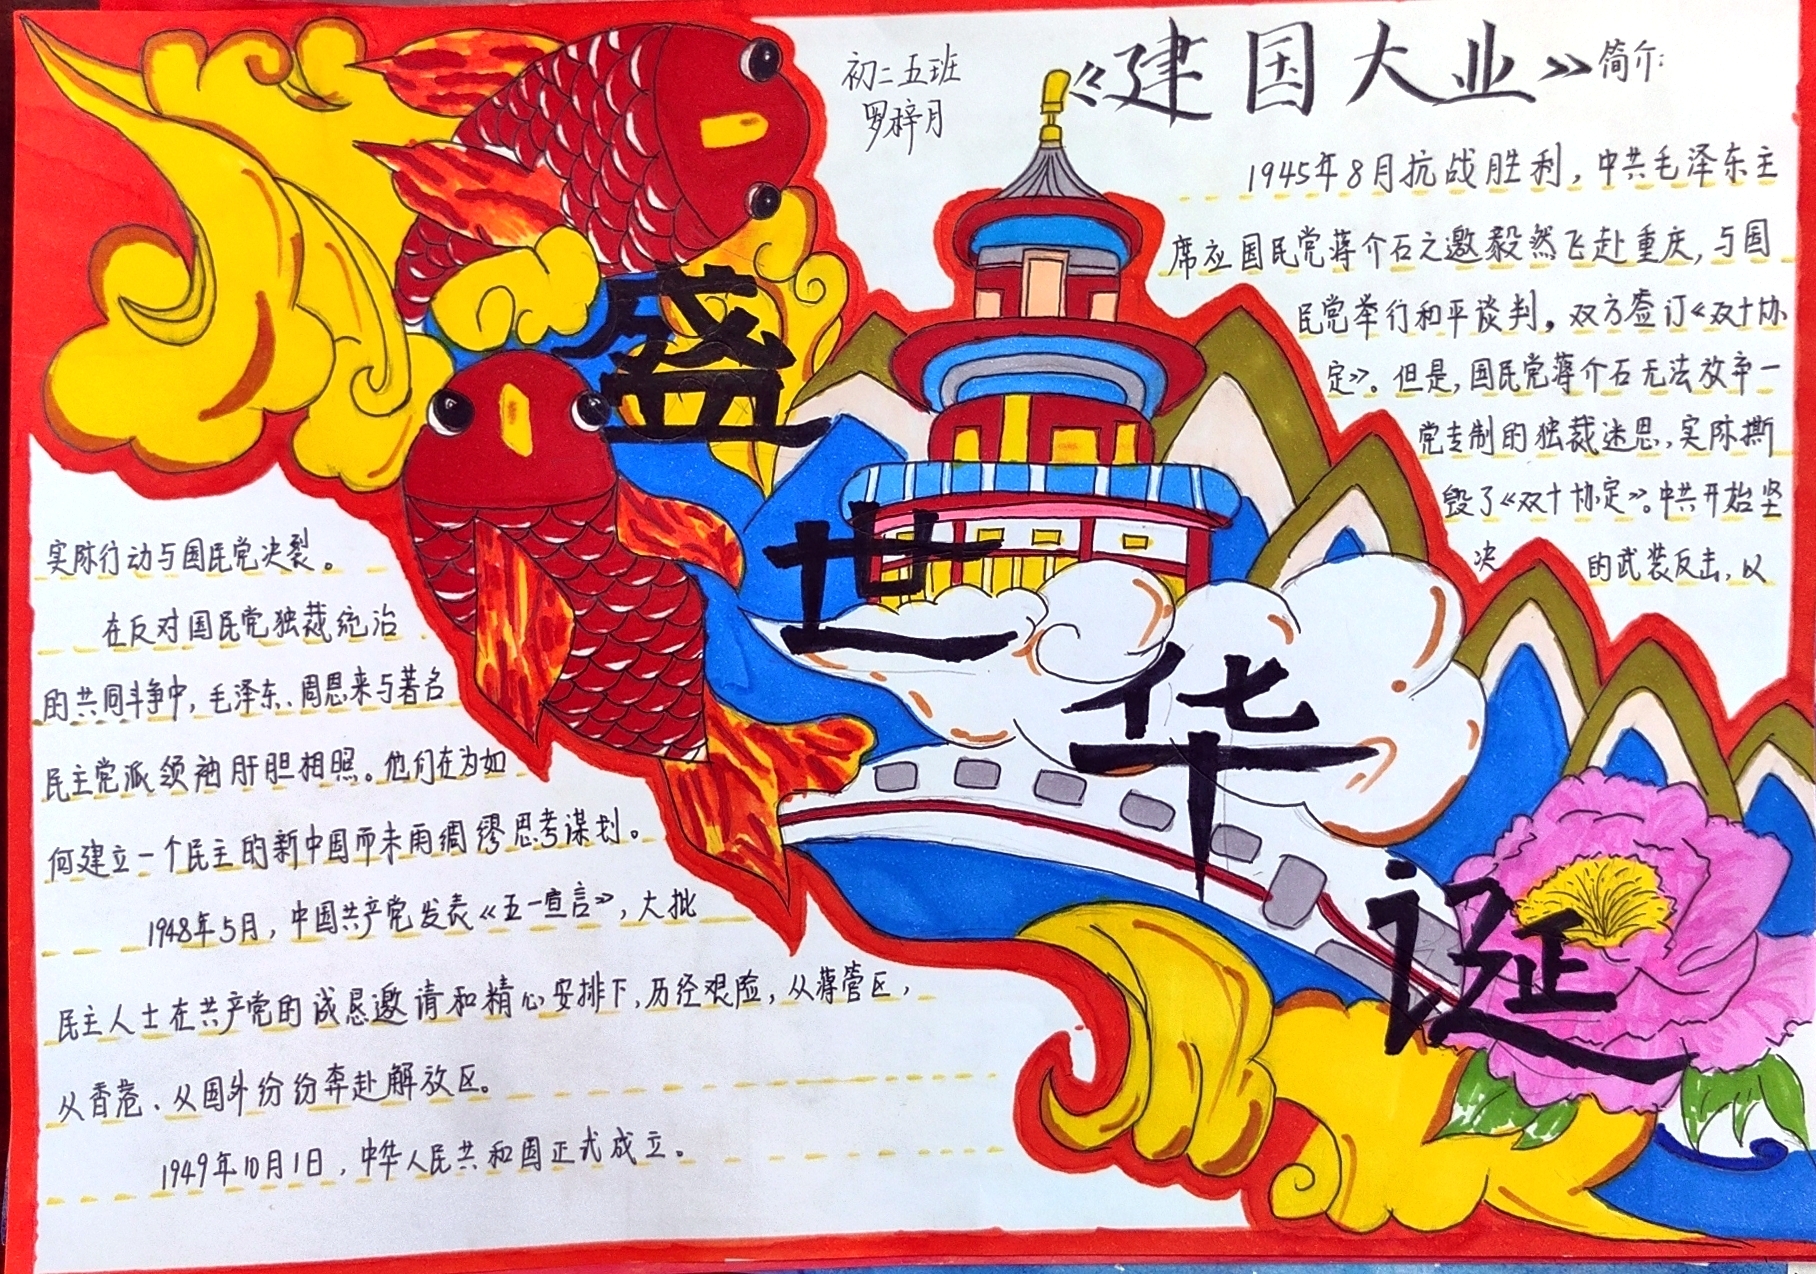 初二五班
罗梓月
《建国大业》简介:
1945年8月抗战胜利,中共毛泽东主
席应国民党蒋介石之邀毅然飞赴重庆,与国
民党举行和平谈判,双方签订《双十协
定》。但是,国民党蒋介石无法放弃一
党专制的独裁迷思,实际撕
毁了《双十协定》。中共开始坚
决 的武装反击,以
盛世华诞
实际行动与国民党决裂。
在反对国民党独裁统治
的共同斗争中,毛泽东、周恩来与著名
民主党派领袖肝胆相照。他们在为如
何建立一个民主的新中国而未雨绸缪思考谋划。
1948年5月,中国共产党发表《五一宣言》,大批
民主人士在共产党的诚恳邀请和精心安排下,历经艰险,从蒋管区,
从香港、从国外纷纷奔赴解放区。
1949年10月1日,中华人民共和国正式成立。